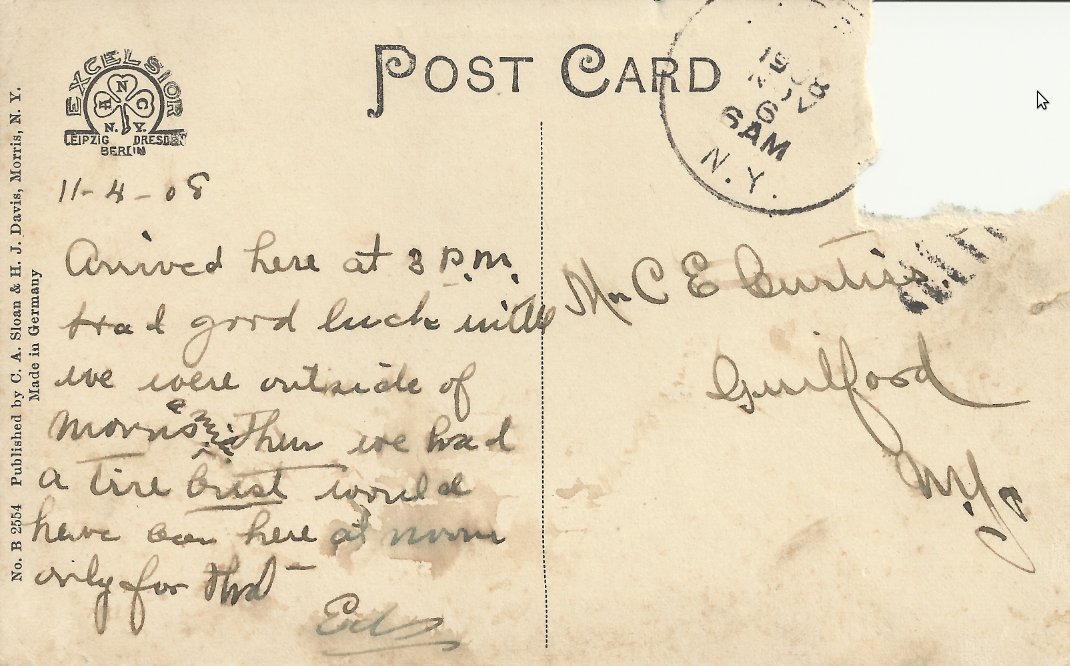 EXCELSIOR
H N C
N. Y.
LEIPZIG DRESDEN
BERLIN
POST CARD
1908
NOV
6
6AM
N.Y.
No. B 2554 Published by C. A. Sloan & H. J. Davis, Morris, N. Y.
Made in Germany
11-4-08
Arrived here at 3 P.M.
Had good luck until
we were outside of
Morris Then we had
a tire bust would
have been here at noon
only for that
Ed
Mr C E Curtiss
Guilford
N.Y.